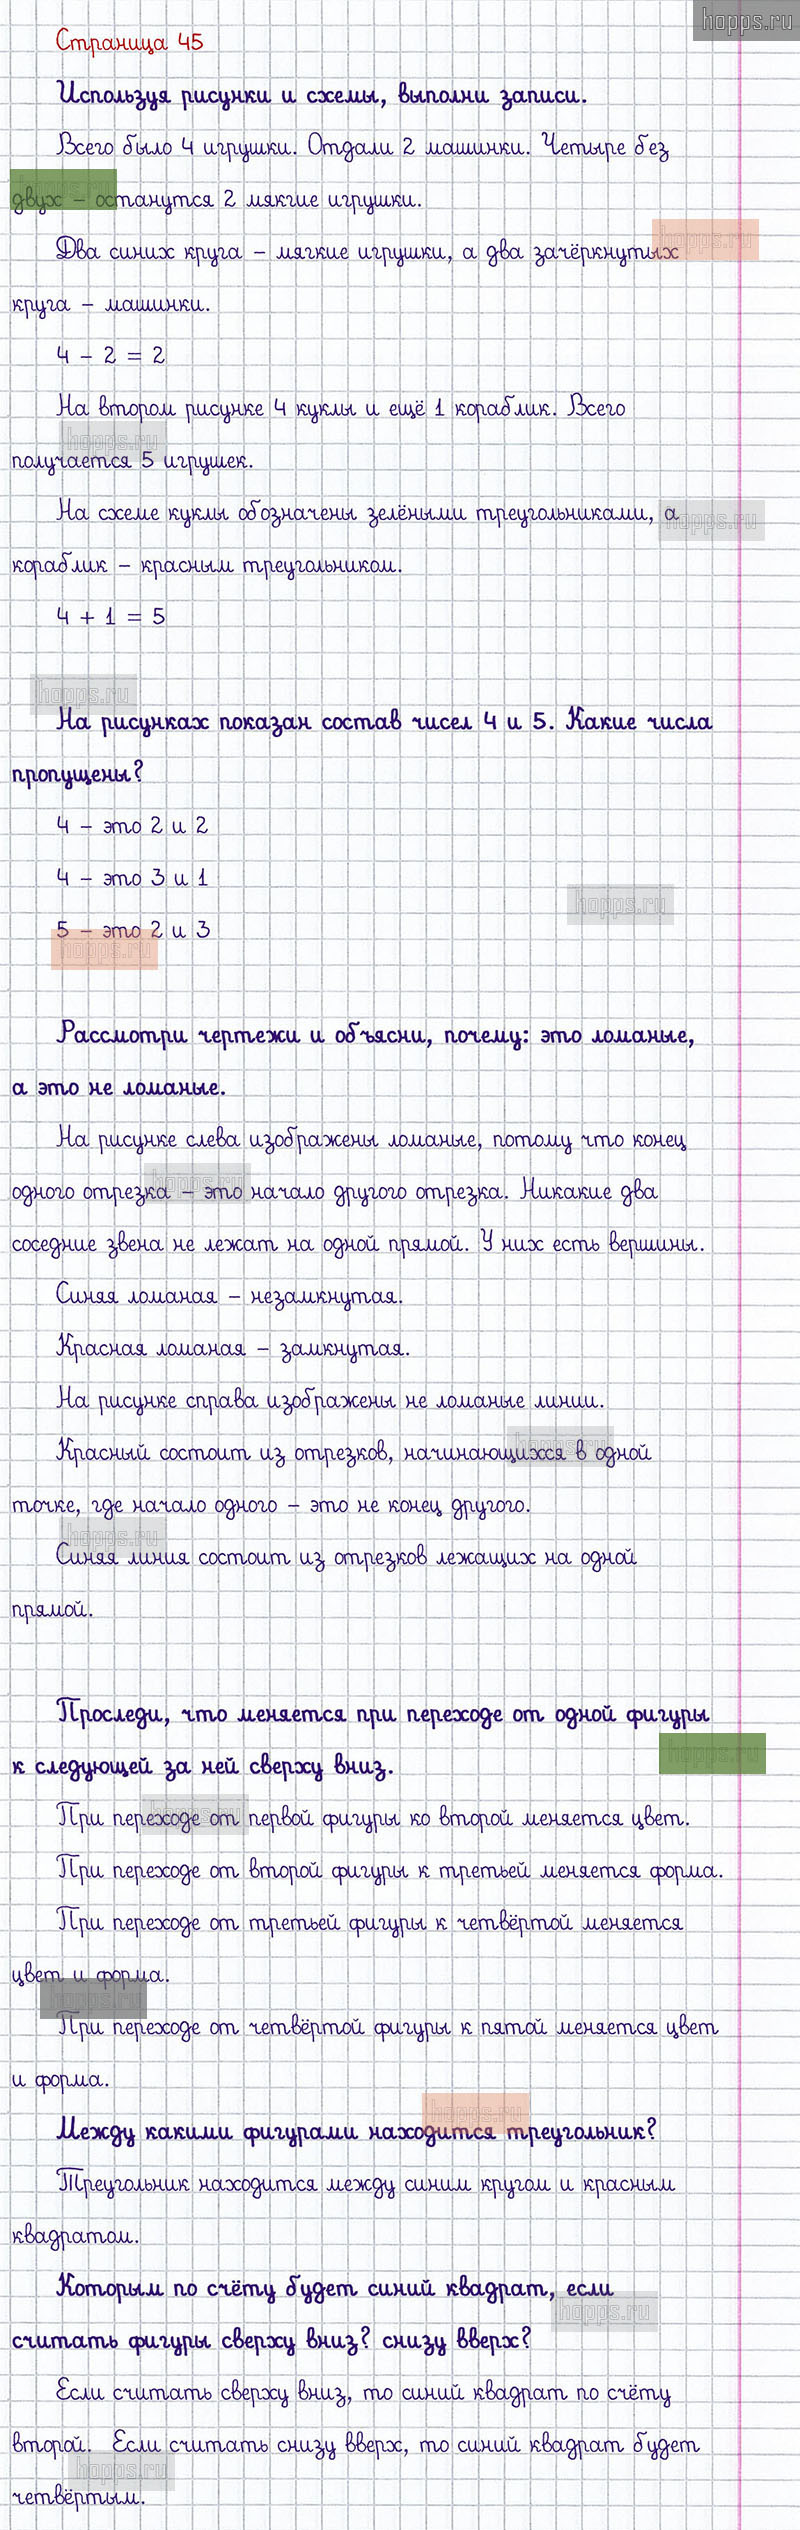 hopps.ru
Страница 45
Используя рисунки и схемы, выполни записи.
Всего было 4 игрушки. Отдали 2 машинки. Четыре без
двух – останутся 2 мякгие игрушки.
hopps.ru
Два синих круга – мягкие игрушки, а два зачёркнутых
круга – машинки.
4 – 2 = 2
На втором рисунке 4 куклы и ещё 1 кораблик. Всего
hopps.ru
получается 5 игрушек.
На схеме куклы обозначены зелёными треугольниками, а
hopps.ru
кораблик – красным треугольником.
4 + 1 = 5
hopps.ru
На рисунках показан состав чисел 4 и 5. Какие числа
пропущены?
4 – это 2 и 2
4 – это 3 и 1
hopps.ru
5 – это 2 и 3
hopps.ru
Рассмотри чертежи и объясни, почему: это ломаные,
а это не ломаные.
На рисунке слева изображены ломаные, потому что конец
hopps.ru
одного отрезка – это начало другого отрезка. Никакие два
соседние звена не лежат на одной прямой. У них есть вершины.
Синяя ломаная – незамкнутая.
Красная ломаная – замкнутая.
На рисунке справа изображены не ломаные линии.
hopps.ru
Красный состоит из отрезков, начинающихся в одной
точке, где начало одного – это не конец другого.
hopps.ru
Синяя линия состоит из отрезков лежащих на одной
прямой.
Проследи, что меняется при переходе от одной фигуры
hopps.ru
к следующей за ней сверху вниз.
hopps.ru
При переходе от первой фигуры ко второй меняется цвет.
При переходе от второй фигуры к третьей меняется форма.
При переходе от третьей фигуры к четвёртой меняется
цвет и форма.
hopps.ru
При переходе от четвёртой фигуры к пятой меняется цвет
и форма.
hopps.ru
Между какими фигурами находится треугольник?
Треугольник находится между синим кругом и красным
квадратом.
Которым по счёту будет синий квадрат, если
hopps.ru
считать фигуры сверху вниз? снизу вверх?
Если считать сверху вниз, то синий квадрат по счёту
второй. Если считать снизу вверх, то синий квадрат будет
hopps.ru
четвёртым.